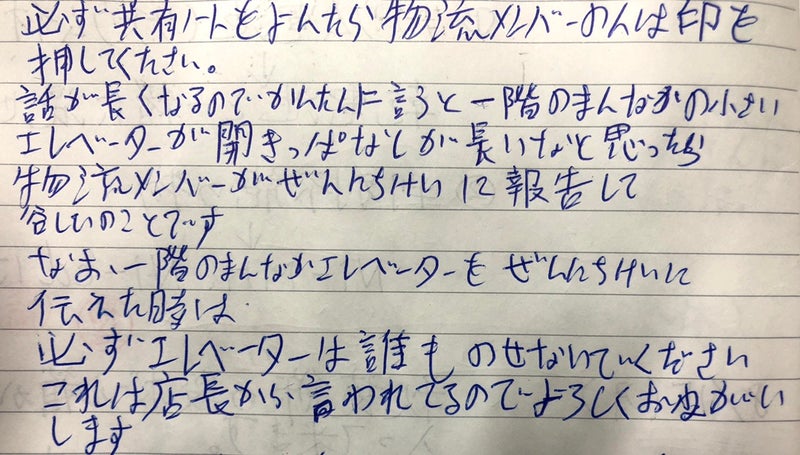 必ず共有ノートをよんだら物流メンバーのんは印を
押してください。
話が長くなるのでかんたんに言うと一階のまんなかの小さい
エレベーターが開きっぱなしが長いなと思ったら
物流メンバーがぜんにちけいに報告して
欲しいのことです
なお、一階のまんなかエレベーターをぜんにちけいに
伝えた時は
必ずエレベーターは誰ものせないでください
これは店長から言われてるのでよろしくおねがい
します